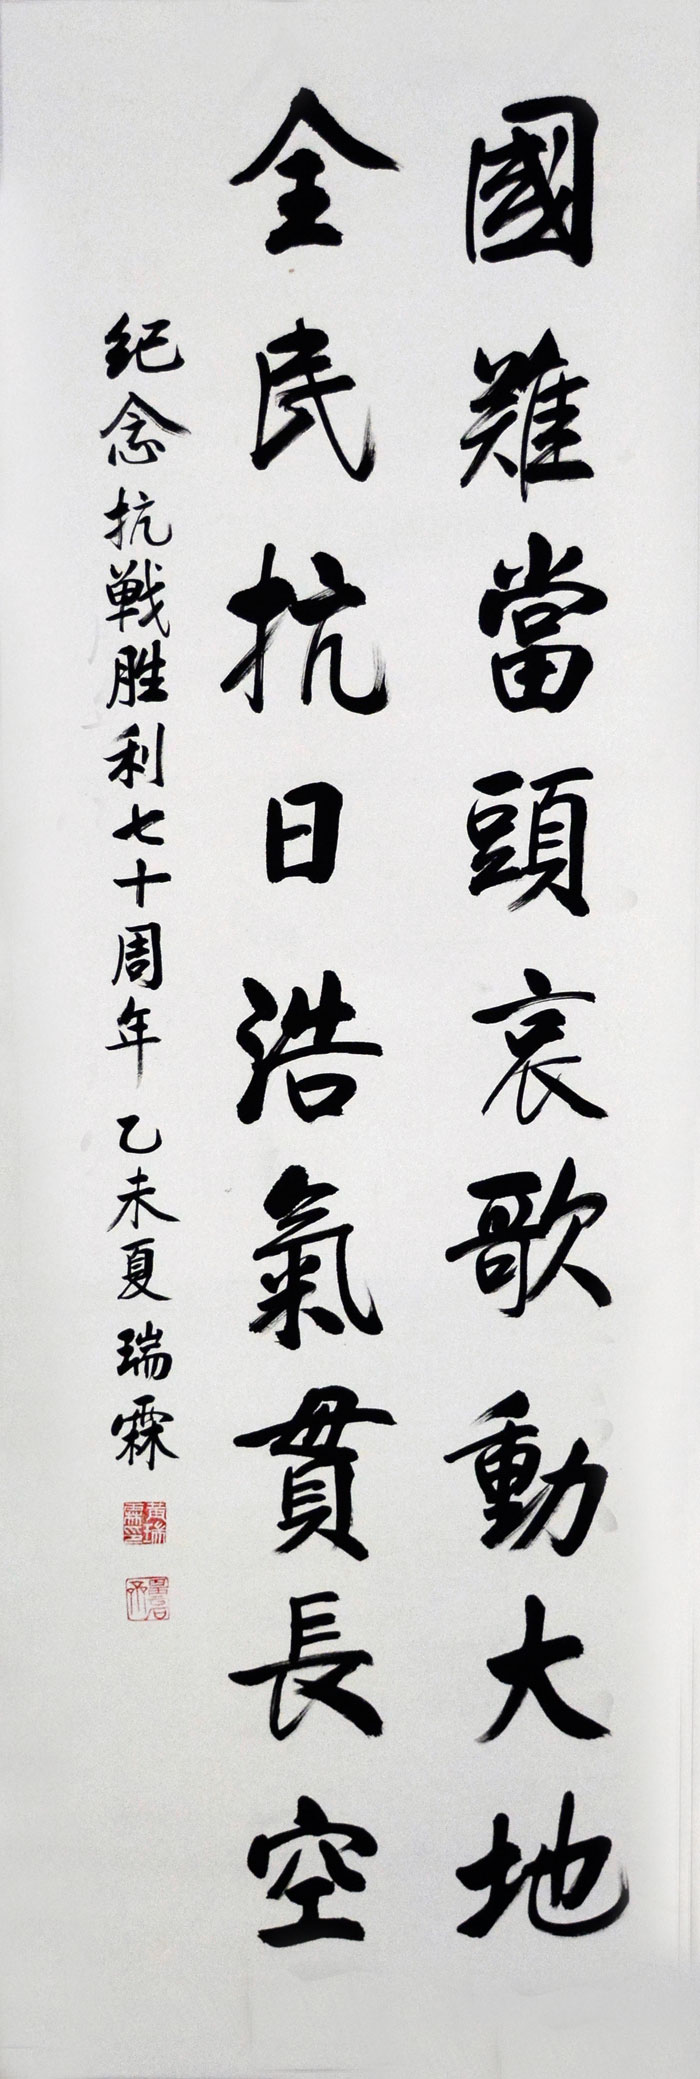 國難當頭哀歌動大地
全民抗日浩氣貫長空
纪念抗戦胜利七十周年 乙未夏 瑞霖
黄瑞霖印